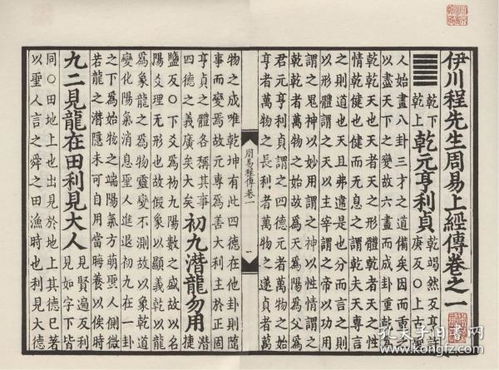 伊川程先生周易上經傳卷之一
䷀乾下乾上 乾元亨利貞 乾竭然反亨許庚反○上古聖
人始畫八卦三才之道備矣因而重之
以盡天下之變故六畫而成卦重乾爲
乾乾天也天者天之形體乾者天之性
情乾健也健而无息之謂乾夫天專言
之則道也天且弗違是也分而言之則
以形體謂之天以主宰謂之帝以功用
謂之鬼神以妙用謂之神以性情謂之
乾乾者萬物之始故爲天爲陽爲父爲
君元亨利貞謂之四德元者萬物之始
亨者萬物之長利者萬物之遂貞者萬
周易程傳卷一
一
物之成唯乾坤有此四德在他卦則隨
事而變焉故元專爲善大利主於正固
亨貞之體各稱其事四德之義廣矣大矣 初九潛龍勿用 潛捷
鹽反○下爻爲初九陽數之盛故以名
陽爻理无形也故假象以顯義乾以龍
爲象龍之爲物靈變不測故以象乾道
變化陽氣消息聖人進退初九在一卦
之下爲始物之端陽氣方萌聖人側微
若龍之潛隱未可自用當晦養以俟時
九二見龍在田利見大人 見賢遍反利見如字下皆
同○田地上也出見於地上其德已著
以聖人言之舜之田漁時也利見大德
孔夫子旧书网
www.kongfz.com